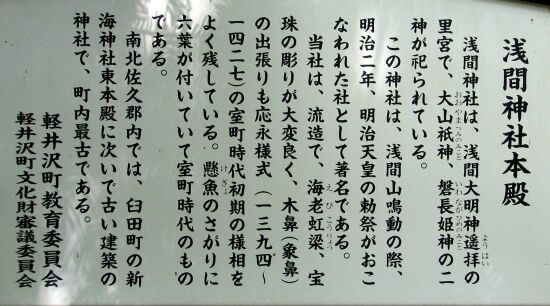 浅間神社本殿
浅間神社は、浅間大明神遥拝の
里宮で、大山祇神、磐長姫神の二
神が祀られている。
この神社は、浅間山鳴動の際、
明治二年、明治天皇の勅祭がおこ
なわれた社として著名である。
当社は、流造で、海老虹梁、宝
珠の彫りが大変良く、木鼻(象鼻)
の出張りも応永様式(一三九四〜
一四二七)の室町時代初期の様相を
よく残している。懸魚のさがりに
六葉が付いていて室町時代のもの
である。
南北佐久郡内では、臼田町の新
海神社東本殿に次いで古い建築の
神社で、町内最古である。
軽井沢町教育委員会
軽井沢町文化財審議委員会